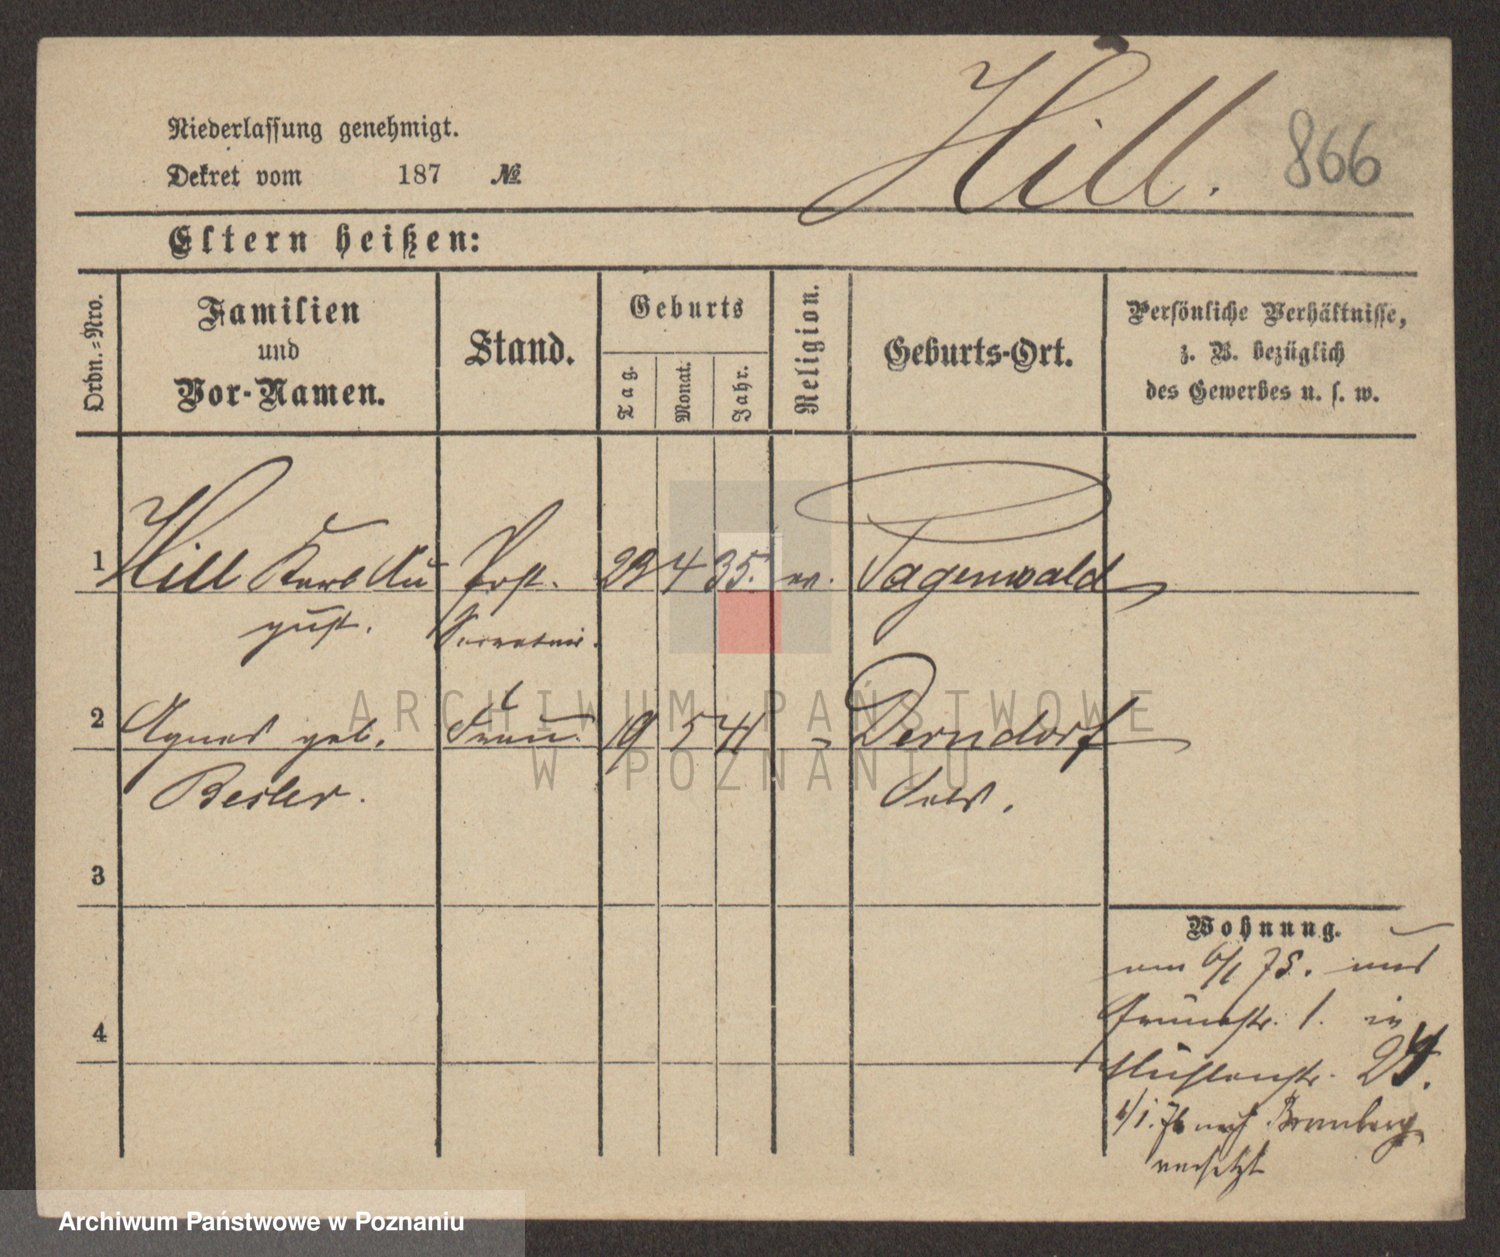 Hill. 866
Niederlassung genehmigt.
Dekret vom 187 №
Eltern heißen:
Ordn.-Nro.
Familien
und
Vor-Namen.
Stand.
Geburts
Tag.
Monat.
Jahr.
Religion.
Geburts-Ort.
Persönliche Verhältnisse,
z. B. bezüglich
des Gewerbes u. s. w.
1 Hill Karl Au Post 23 4 35. ev. Pagenwald
gust. Secretair.
2 Agnes geb. Frau 19 5 41 Derndorf
Besler.
3
4
Wohnung.
am 6/1 75. aus
Grünestr. 1. in
Mühlenstr. 24.
1/1. 76 nach Bromberg
versetzt
ARCHIWUM PAŃSTWOWE
W POZNANIU
Archiwum Państwowe w Poznaniu